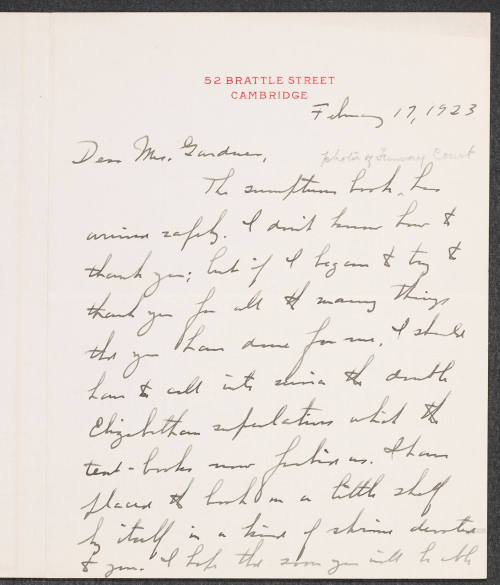 52 BRATTLE STREET
CAMBRIDGE
February 17, 1923
Dear Mrs. Gardner,
photos of Fenway Court
The sumptuous book, has
arrived safely. I don't know how to
thank you; but if I began to try to
thank you for all the many things
that you have done for me, I should
have to call into service the double
Elizabethan superlatives which the
text-books now forbid us. I have
placed the book on a little shelf
by itself in a kind of shrine devoted
to you. I hope that soon you will be able